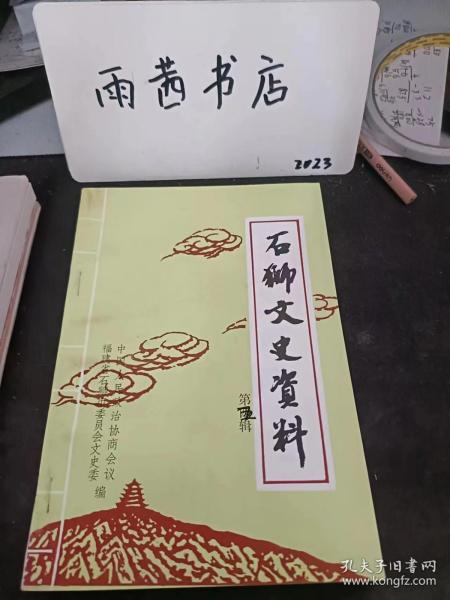 雨茜书店
2023
石狮文史資料
第五辑
中国人民政治协商会议
福建省石狮市委员会文史委 编
孔夫子旧书网
www.kongfz.com